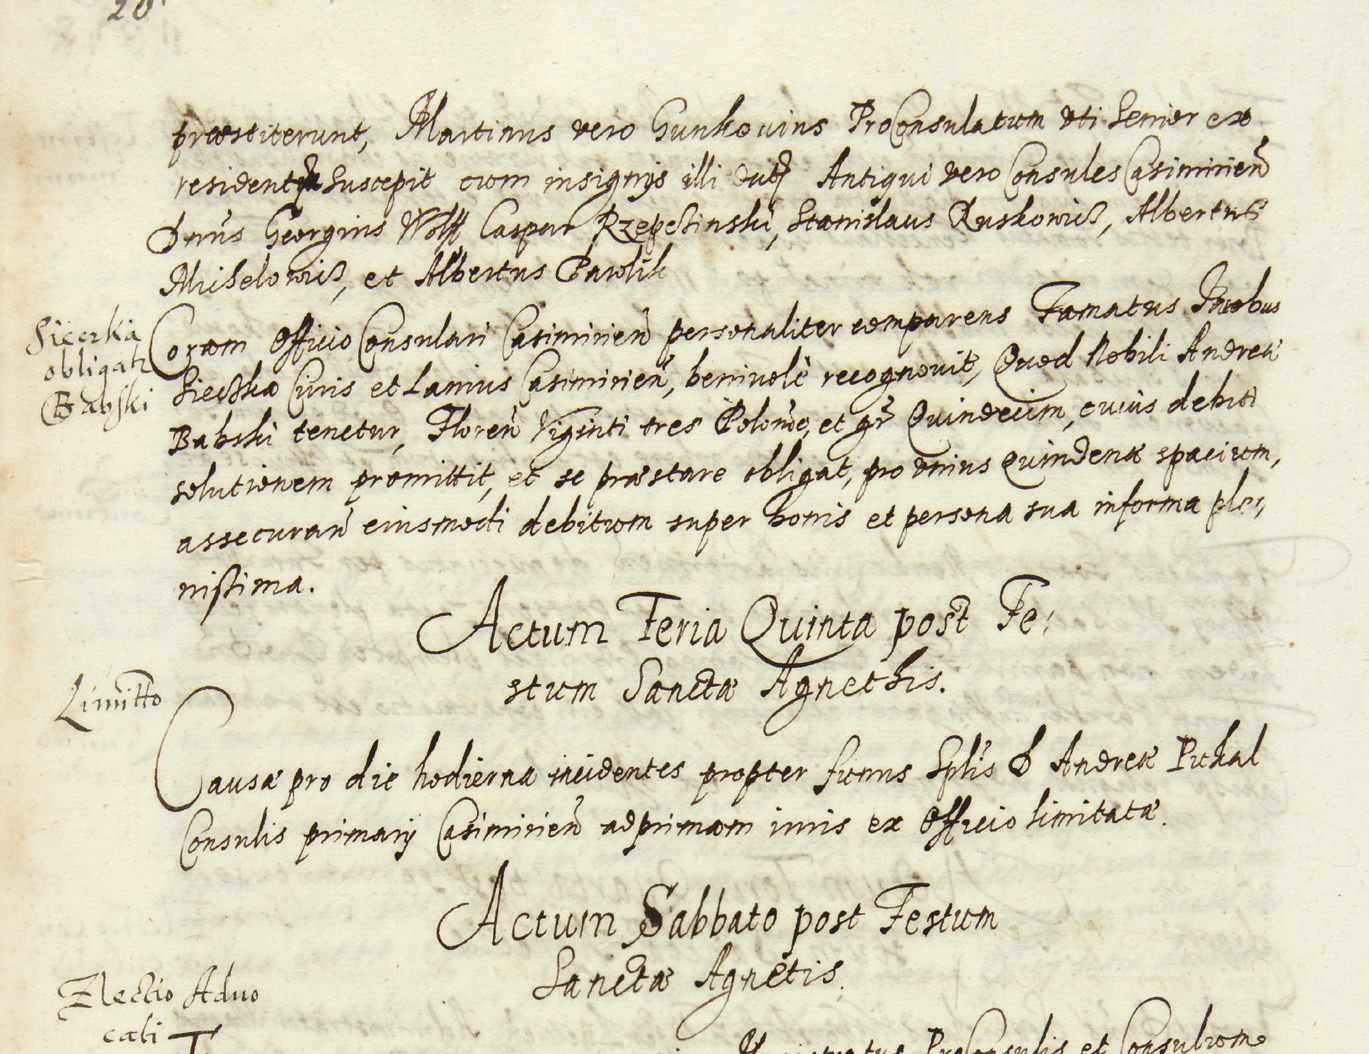 20
præstiterunt, Martinus vero Gunkovius ProConsulatum uti Senior ex
residenti suscepit cum insignijs illi Antiqui vero Consules Casimirien̄
Georgius Wolff Caspar Stanislaus Ruskowicz, Albertus
et Albertus Pawlik
Sieczka
obligat̃
Babski
Coram Officio Consulari Casimirien̄ personaliter comparens Famatus Jacobus
Sieczka Civis et Lanius Casimirien̄, benivolè recognovit, Quod Nobili Andreæ
Babski tenetur, Floren̄ Viginti tres et gr̃ Quindecim, cuius debiti
solutionem promittit, et se præstare obligat, pro unius Quindenæ spacium,
assecuran̄ eiusmodi debitum super bonis et persona sua in forma ple,
nissima.
Actum Feria Quinta post Fe,
stum Sanctæ Agnethis.
Limitto
Causæ pro die hodierna incidentes propter funus Andreæ Pikal
Consulis primarij Casimirien̄ ad primam iuris ex Officio limitatæ.
Actum Sabbato post Festum
Sanctæ Agnetis.
Electio Advo
cati
ProConsulis et Consulum